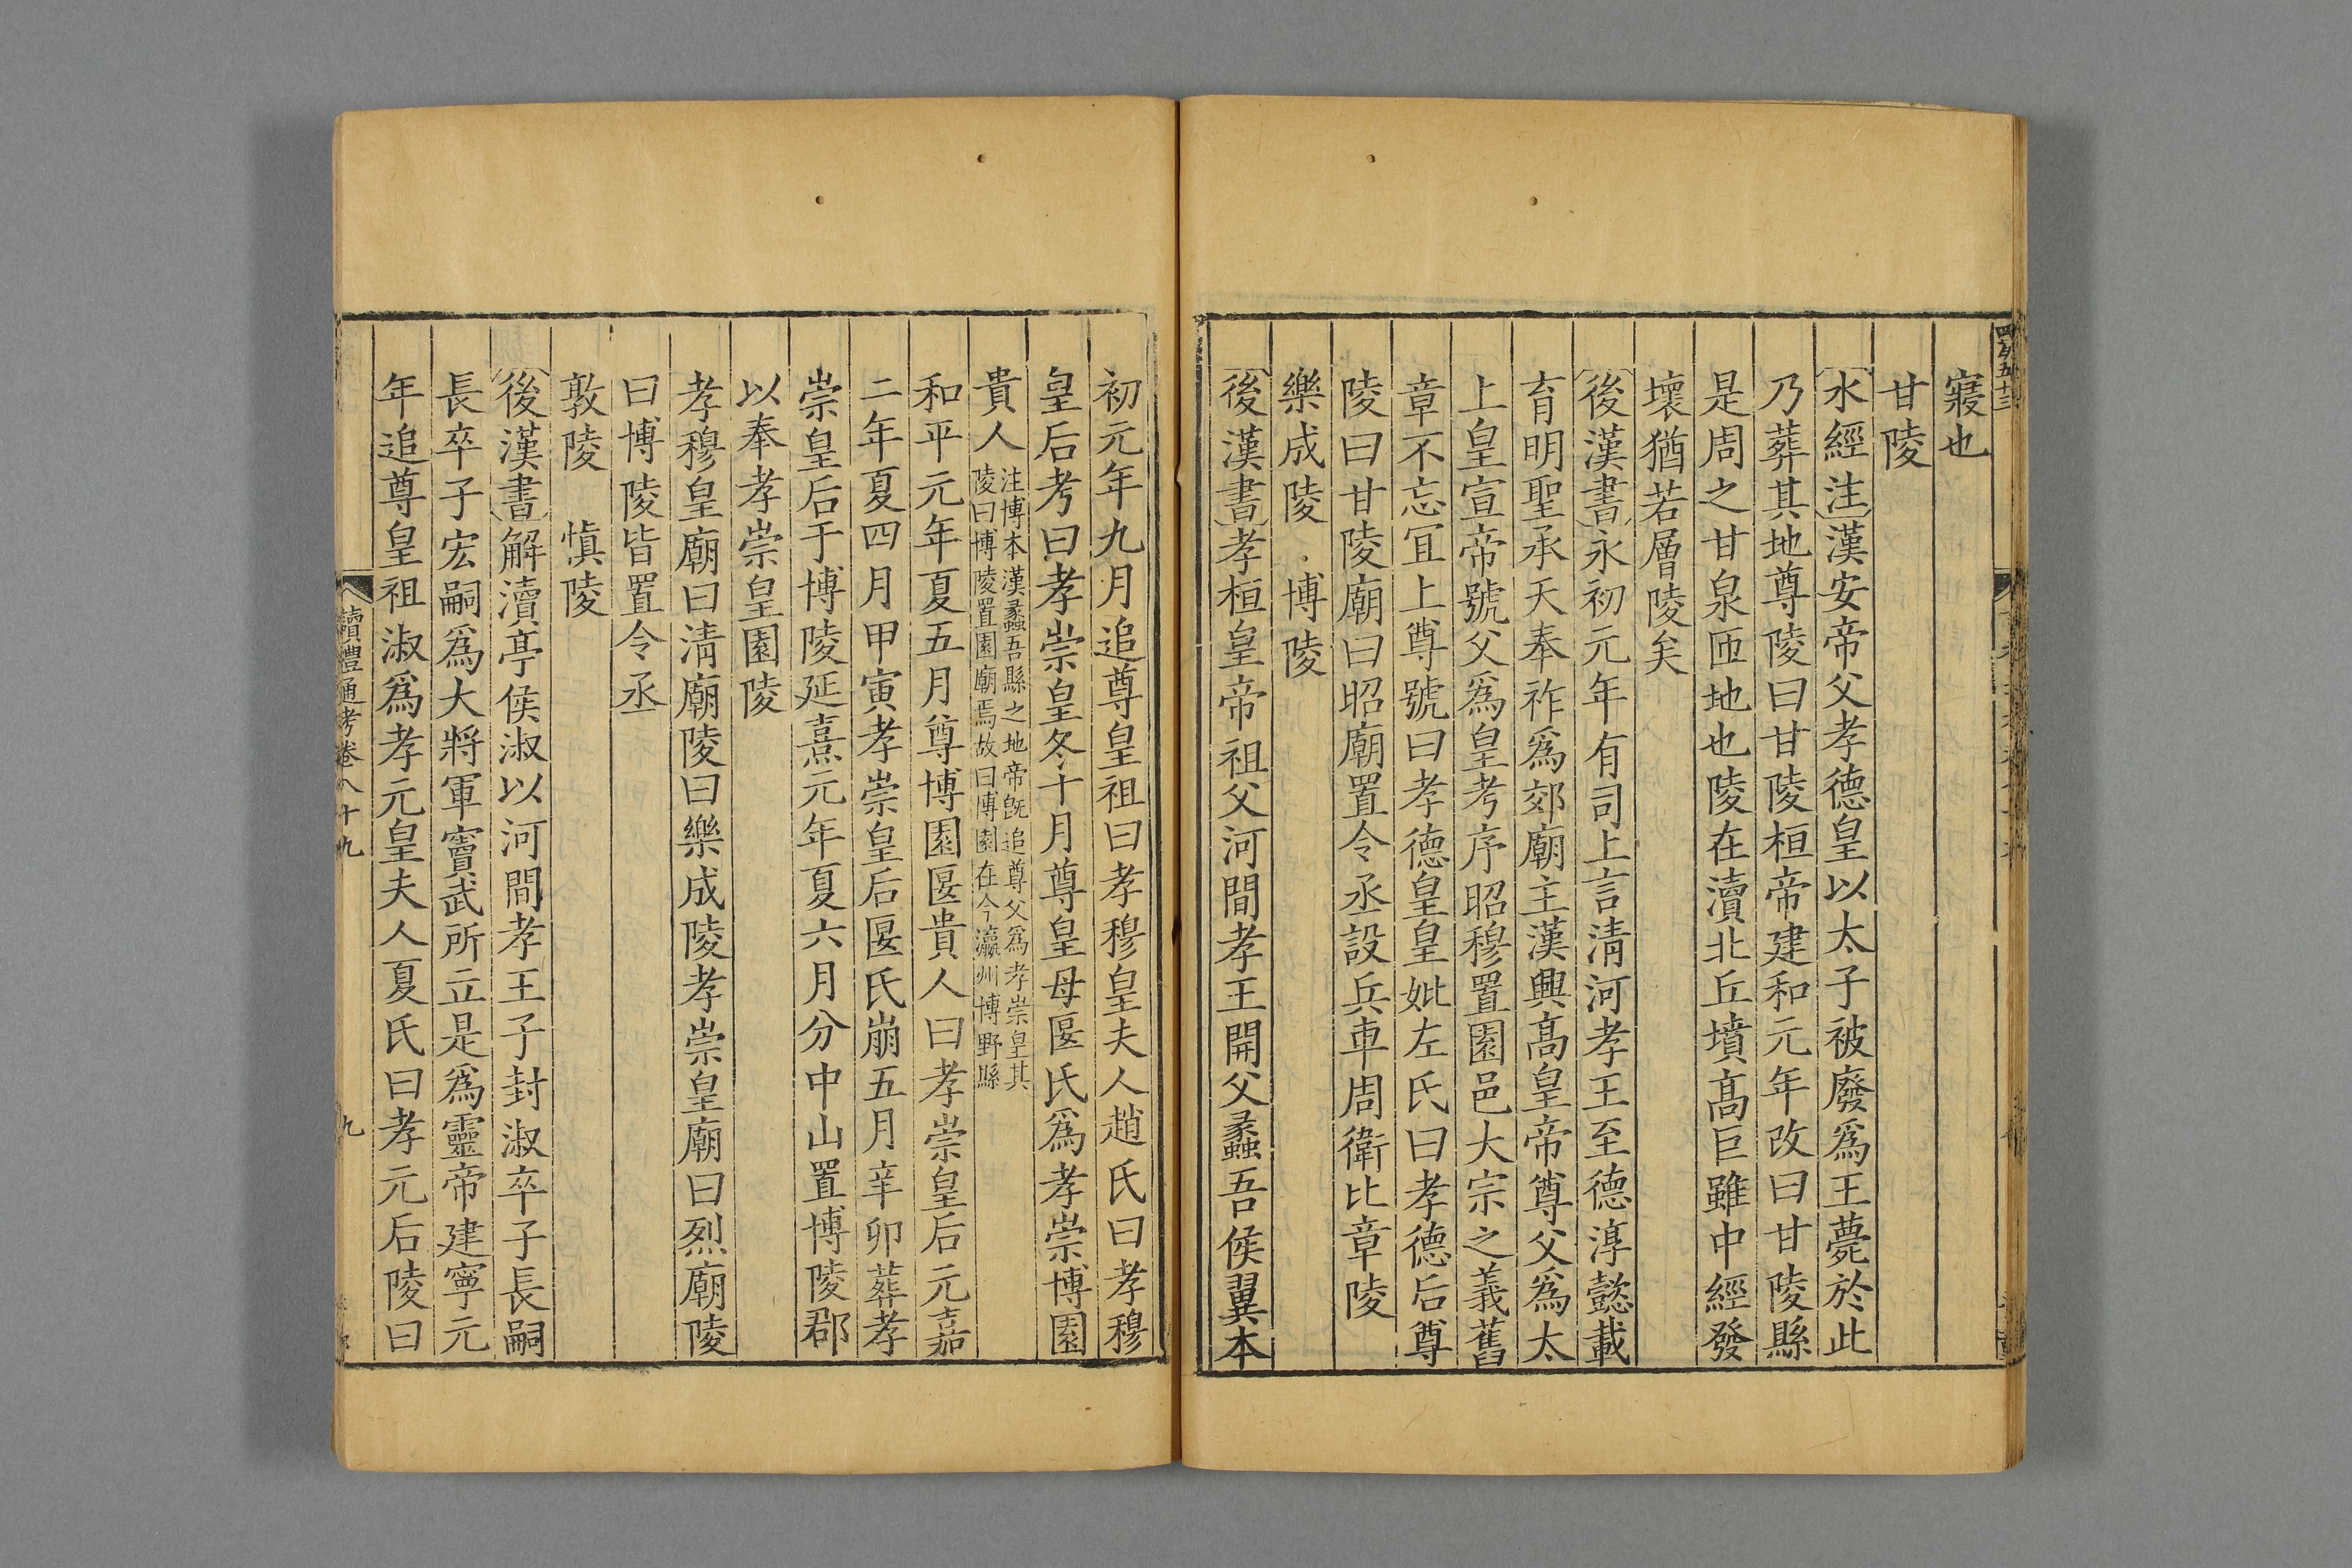 寢也
甘陵
水經注漢安帝父孝德皇以太子被廢爲王薨於此
乃葬其地尊陵曰甘陵桓帝建和元年改曰甘陵縣
是周之甘泉匝地也陵在瀆北丘墳髙巨雖中經發
壞猶若層陵矣
後漢書永初元年有司上言淸河孝王至德淳懿載
育明聖承天奉祚爲郊廟主漢興髙皇帝尊父爲太
上皇宣帝號父爲皇考序昭穆置園邑大宗之義舊
章不忘冝上尊號曰孝德皇皇妣左氏曰孝德后尊
陵曰甘陵廟曰昭廟置令丞設兵車周衛比章陵
樂成陵 博陵
後漢書孝桓皇帝祖父河間孝王開父蠡吾侯翼本
初元年九月追尊皇祖曰孝穆皇夫人趙氏曰孝穆
皇后考曰孝崇皇冬十月尊皇母匽氏爲孝崇博園
貴人
注博本漢蠡吾縣之地帝旣追尊父爲孝崇皇其
陵曰博陵置園廟焉故曰博園在今瀛州博野縣
和平元年夏五月尊博園匽貴人曰孝崇皇后元嘉
二年夏四月甲寅孝崇皇后匽氏崩五月辛卯葬孝
崇皇后于博陵延熹元年夏六月分中山置博陵郡
以奉孝崇皇園陵
孝穆皇廟曰淸廟陵曰樂成陵孝崇皇廟曰烈廟陵
曰博陵皆置令丞
敦陵 愼陵
後漢書解瀆亭侯淑以河間孝王子封淑卒子長嗣
長卒子宏嗣爲大將軍竇武所立是爲靈帝建寧元
年追尊皇祖淑爲孝元皇夫人夏氏曰孝元后陵曰
讀禮通考卷八十九
九